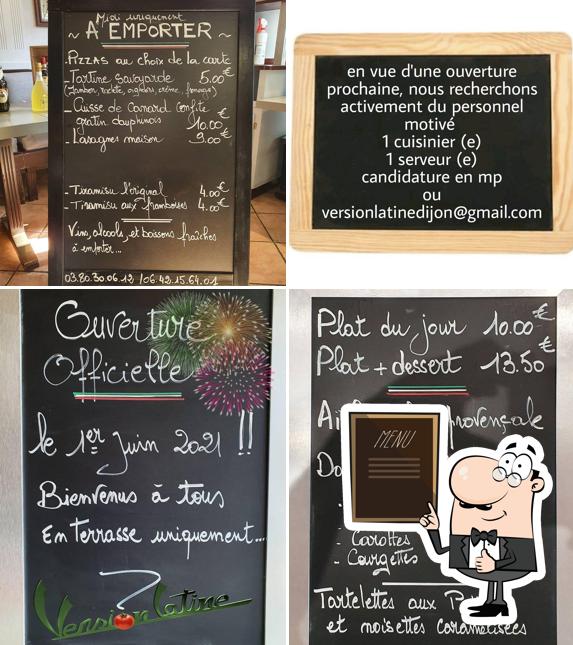 Midi uniquement
~ A EMPORTER ~
- Pizzas au choix de la carte
- Tartine savoyarde 5.00€
(Jambon, raclette, oignons, crème, fromage)
- Cuisse de Canard Confite
gratin dauphinois 10.00€
- Lasagnes maison 9.00€
- Tiramisu l'original 4.00€
- Tiramisu aux framboises 4.00€
Vins, alcools, et boissons fraîches
à emporter...
03.80.30.06.12 /06.42.15.64.01
en vue d'une ouverture
prochaine, nous recherchons
activement du personnel
motivé
1 cuisinier (e)
1 serveur (e)
candidature en mp
ou
versionlatinedijon@gmail.com
Ouverture
Officielle
le 1er Juin 2021 !!
Bienvenus à tous
En Terrasse uniquement...
Version Latine
Plat du jour 10.00€
Plat + dessert 13.50€
provençale
MENU
- Carottes
- Courgettes
Tartelettes aux
et noisettes caramélisées